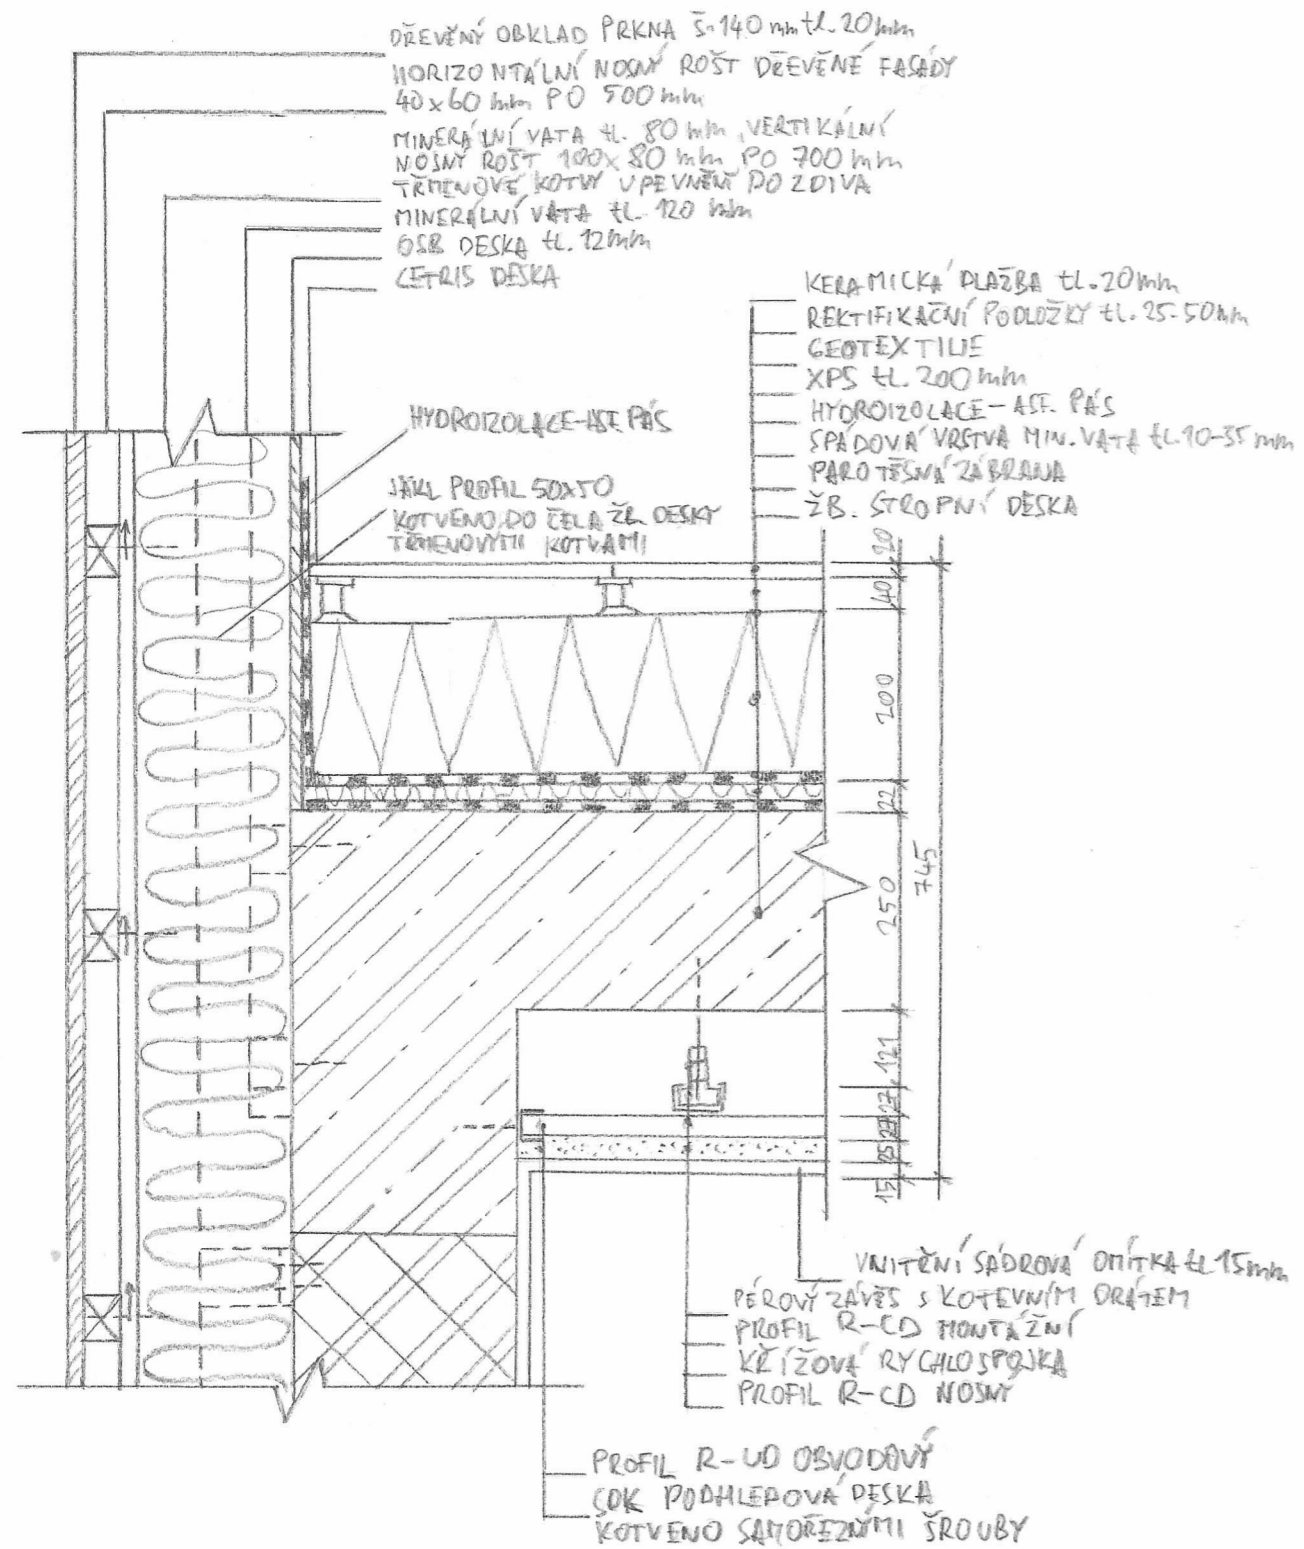 DŘEVĚNÝ OBKLAD PRKNA Š.140 mm tl. 20mm
HORIZONTÁLNÍ NOSNÝ ROŠT DŘEVĚNÉ FASÁDY
40x60 mm PO 500 mm
MINERÁLNÍ VATA tl. 80 mm, VERTIKÁLNÍ
NOSNÝ ROŠT 100x80 mm PO 700 mm
TŘMENOVÉ KOTVY UPEVNĚNÍ DO ZDIVA
MINERÁLNÍ VATA tl. 120 mm
OSB DESKA tl. 12mm
CETRIS DESKA
KERAMICKÁ DLAŽBA tl. 20mm
REKTIFIKAČNÍ PODLOŽKY tl. 25-50mm
GEOTEXTILIE
XPS tl. 200 mm
HYDROIZOLACE-ASF. PÁS
SPÁDOVÁ VRSTVA MIN. VATA tl. 10-35 mm
PAROTĚSNÁ ZÁBRANA
ŽB. STROPNÍ DESKA
HYDROIZOLACE-ASF. PÁS
JÄKL PROFIL 50x50
KOTVENO DO ČELA ŽB. DESKY
TŘMENOVÝMI KOTVAMI
20
40
200
22
250
745
121
27
27
25
15
VNITŘNÍ SÁDROVÁ OMÍTKA tl. 15mm
PÉROVÝ ZÁVĚS S KOTEVNÍM DRÁTEM
PROFIL R-CD MONTÁŽNÍ
KŘÍŽOVÁ RYCHLOSPOJKA
PROFIL R-CD NOSNÝ
PROFIL R-UD OBVODOVÝ
SDK PODHLEDOVÁ DESKA
KOTVENO SAMOŘEZNÝMI ŠROUBY